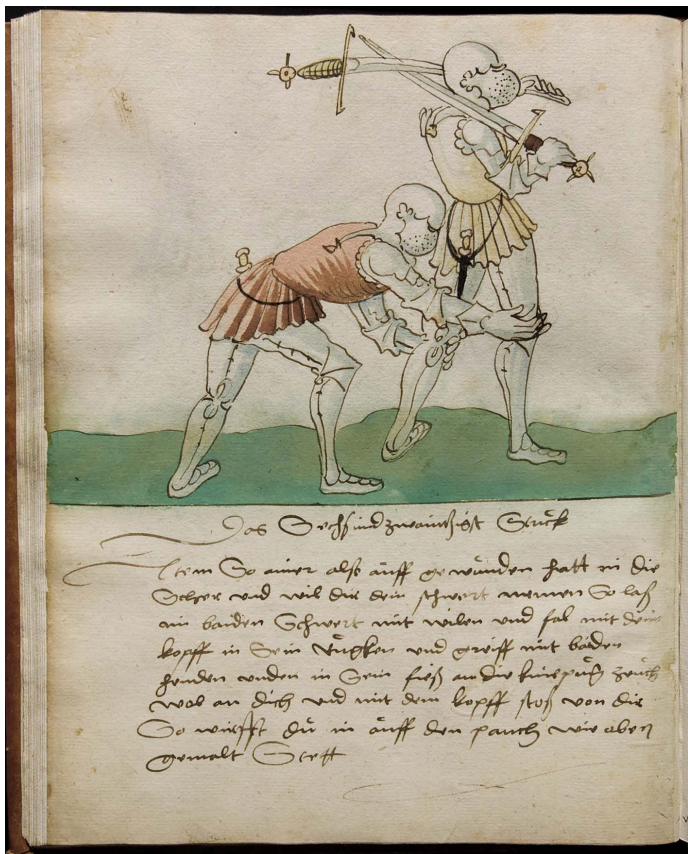 Das Sechsundzwaintzigist Stuckh
Item So ainer also auff gewunden hatt in die
Scher vnd wil dir dein schwert nemen So laß
im baiden Schwert mit wilen vnd fal mit dem
kopff in Sein Rugken vnd greiff mit baiden
henden vnden in Sein fieß an die kniepuß zeuch
wol an dich vnd mit dem kopff stoß von dir
So wirffst du in auff den pauch wie oben
gemalt Stett